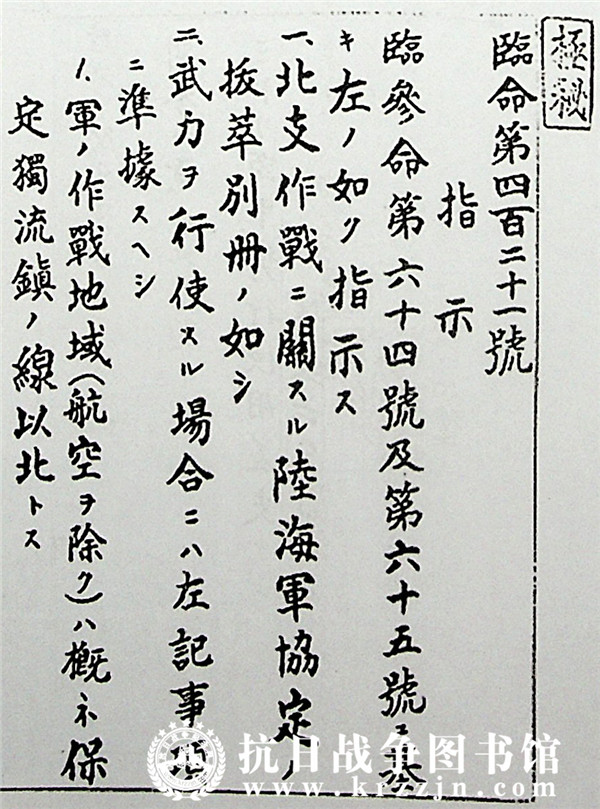 極秘
臨命第四百二十一號
指示
臨參命第六十四號及第六十五號ニ基
キ左ノ如ク指示ス
一、北支作戰ニ關スル陸海軍協定ノ
拔萃別册ノ如シ
二、武力ヲ行使スル場合ニハ左記事項
ニ準據スヘシ
1、軍ノ作戰地域(航空ヲ除ク)ハ概ネ保
定獨流鎭ノ線以北トス
抗日战争图书馆
www.krzzjn.com